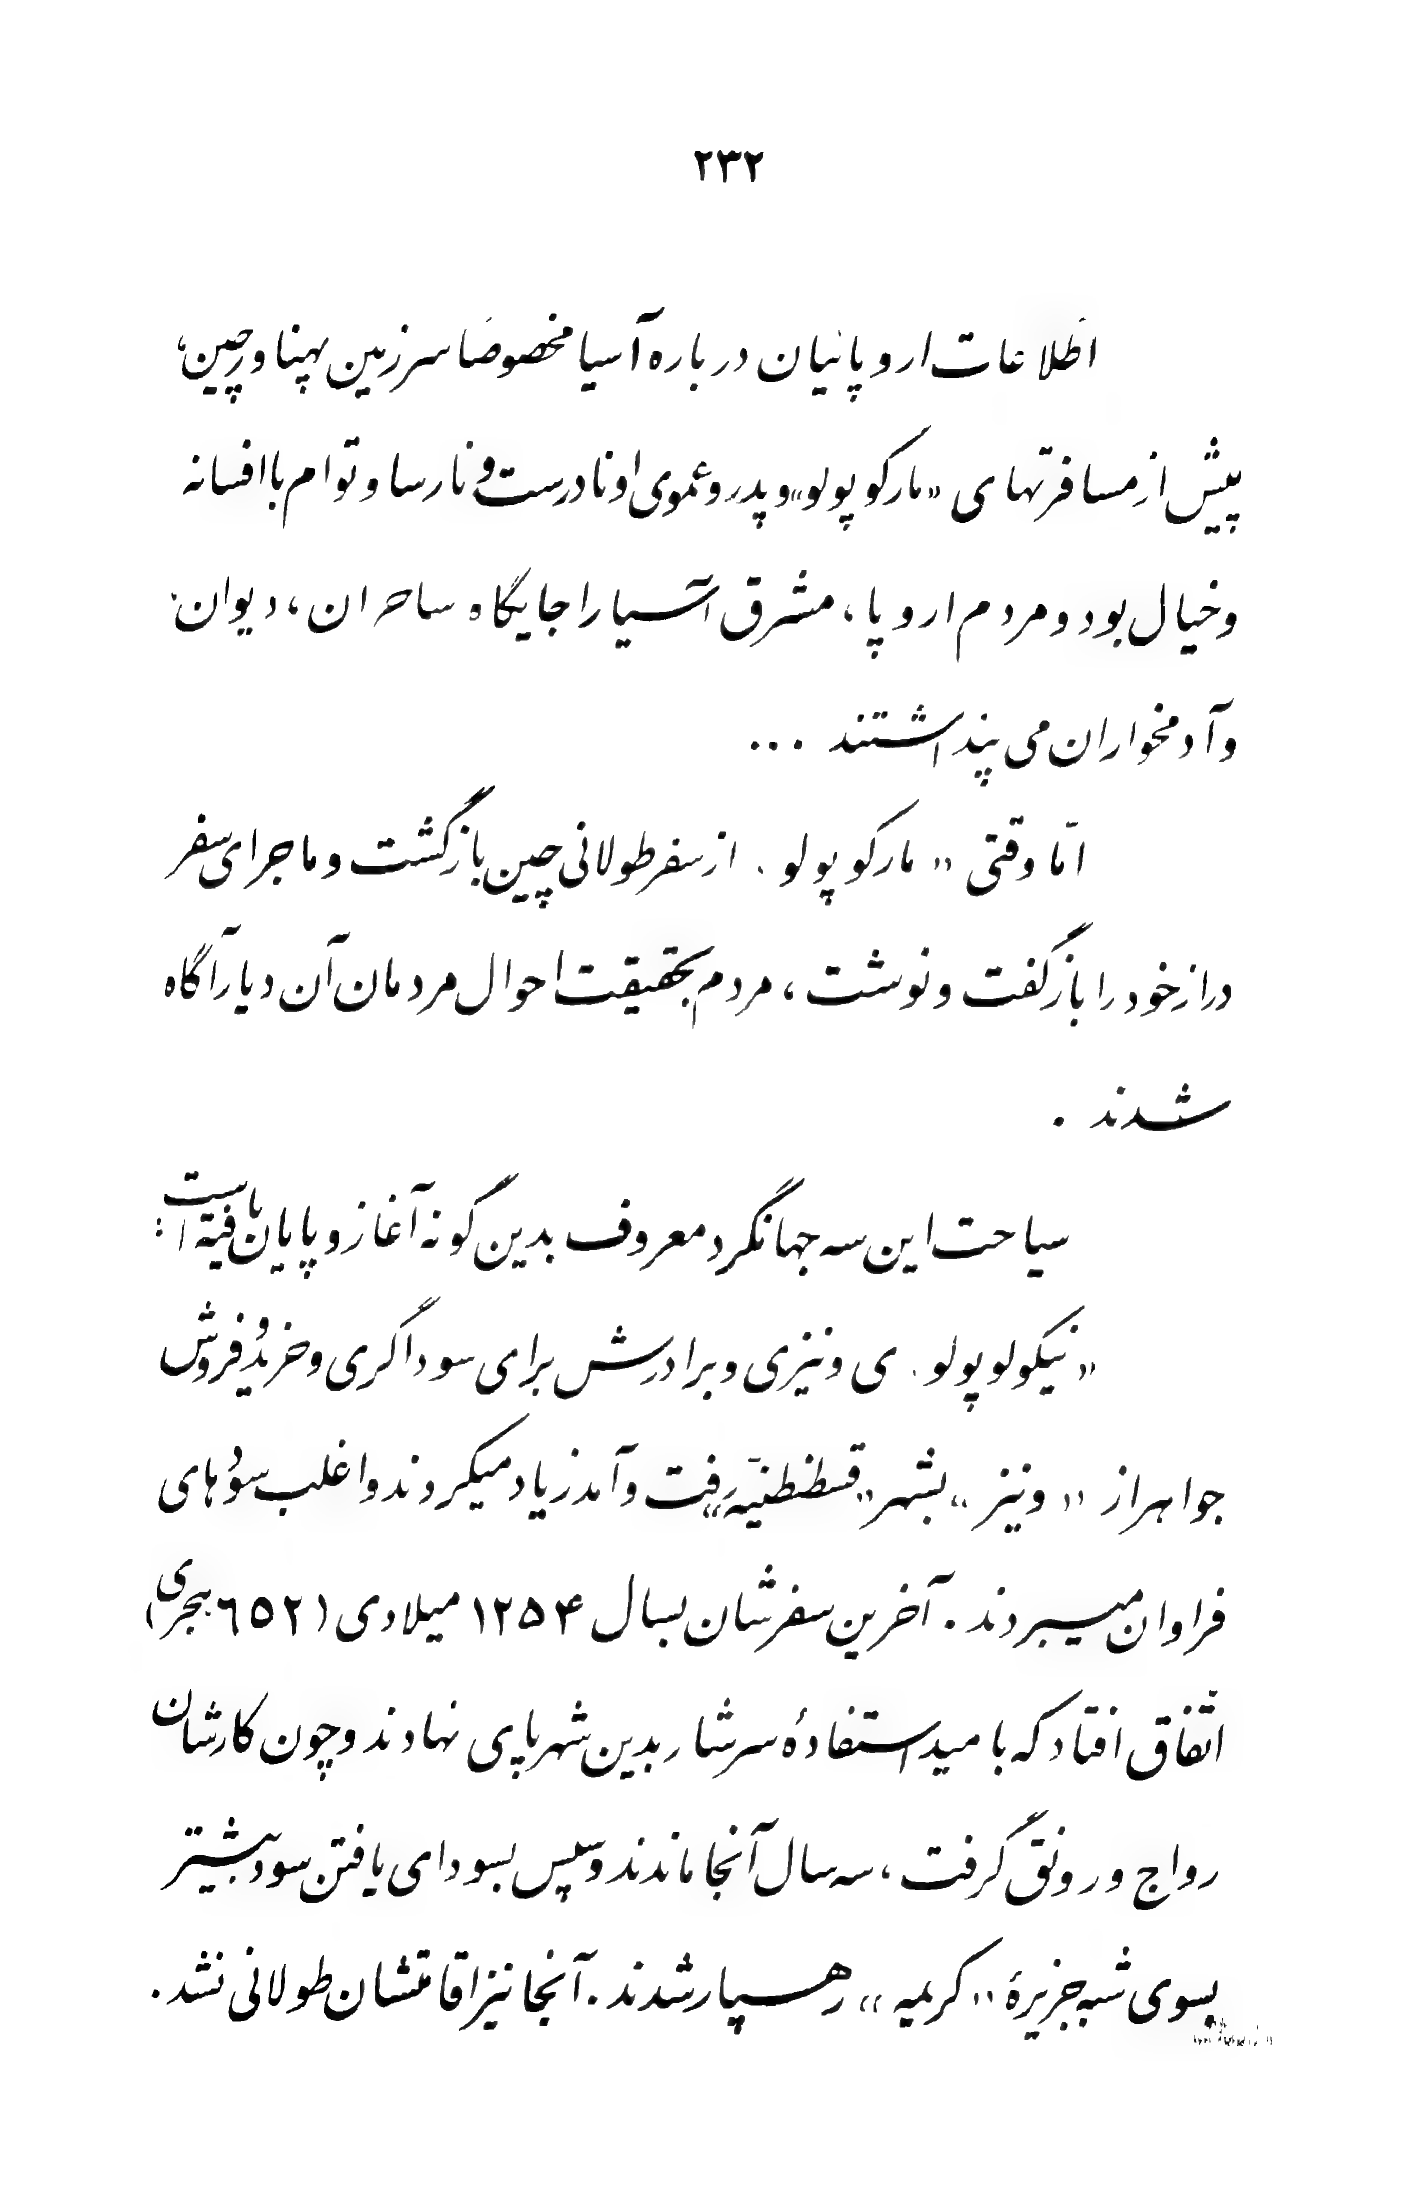 ۲۳۲
اطّلاعات اروپائیان درباره آسیا مخصوصًا سرزمین پهناور چین،
پیش از مسافرتهای «مارکوپولو» و پدر و عموی او نادرست و نارسا و توام با افسانه
و خیال بود و مردم اروپا، مشرق آسیا را جایگاه ساحران، دیوان
و آدمخواران می پنداشتند ...
امّا وقتی «مارکوپولو» از سفر طولانی چین بازگشت و ماجرای سفر
دراز خود را بازگفت و نوشت، مردم بحقیقت احوال مردمان آن دیار آگاه
شدند .
سیاحت این سه جهانگرد معروف بدین گونه آغاز و پایان یافته است:
«نیکولوپولو» ی ونیزی و برادرش برای سوداگری و خرید و فروش
جواهر از «ونیز» بشهر «قسطنطنیّه» رفت و آمد زیاد میکردند و اغلب سودهای
فراوان میبردند . آخرین سفرشان بسال ۱۲۵۴ میلادی (۶۵۲ هجری)
اتّفاق افتاد که بامید استفادهٔ سرشار بدین شهر پای نهادند و چون کارشان
رواج و رونق گرفت، سه سال آنجا ماندند و سپس بسودای یافتن سود بیشتر
بسوی شبه جزیرهٔ «کریمه» رهسپار شدند . آنجا نیز اقامتشان طولانی نشد .